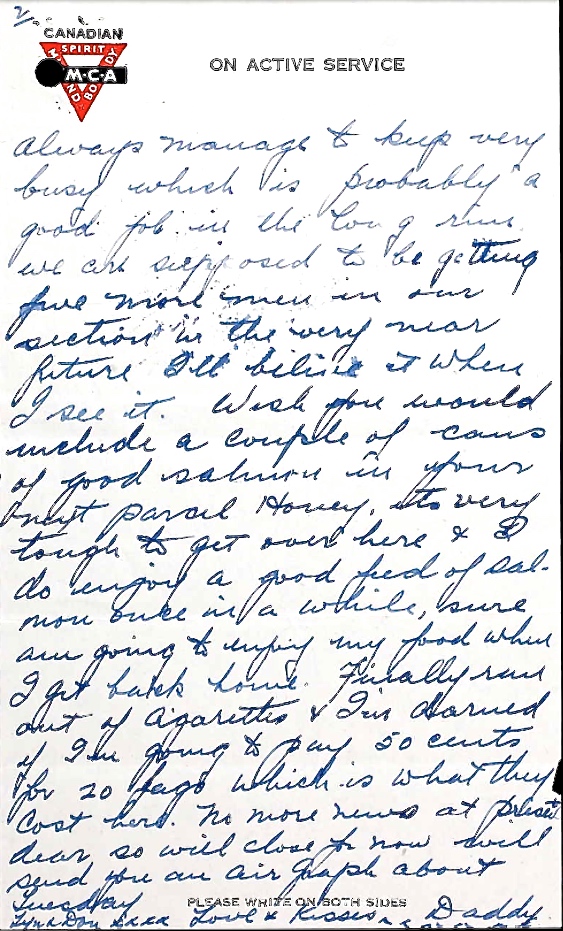 2
CANADIAN
SPIRIT
MIND
BODY
Y·M·C·A
ON ACTIVE SERVICE
always manage to keep very
busy which is probably a
good job in the long run.
we are supposed to be getting
five more men in our
section in the very near
future I'll believe it when
I see it. Wish you would
include a couple of cans
of good salmon in your
next parcel Honey, its very
tough to get over here & I
do enjoy a good feed of sal-
mon once in a while, sure
am going to enjoy my food when
I get back home. Finally run
out of cigarettes & I'm darned
if I'm going to pay 50 cents
for 20 fags which is what they
cost here. No more news at present
dear, so will close for now will
send you an air graph about
Tuesday
PLEASE WRITE ON BOTH SIDES
Love & Kisses Daddy